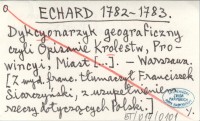 ECHARD 1782-1783.
Dykcyonarzyk geograficzny
czyli Opisanie Królestw, Pro-
wincyi, Miast [...]. - Warszawa.
[Z wyd. franc. tłumaczył Franciszek
Siarczyński, z uzupełnieniem
rzeczy dotyczących Polski.]